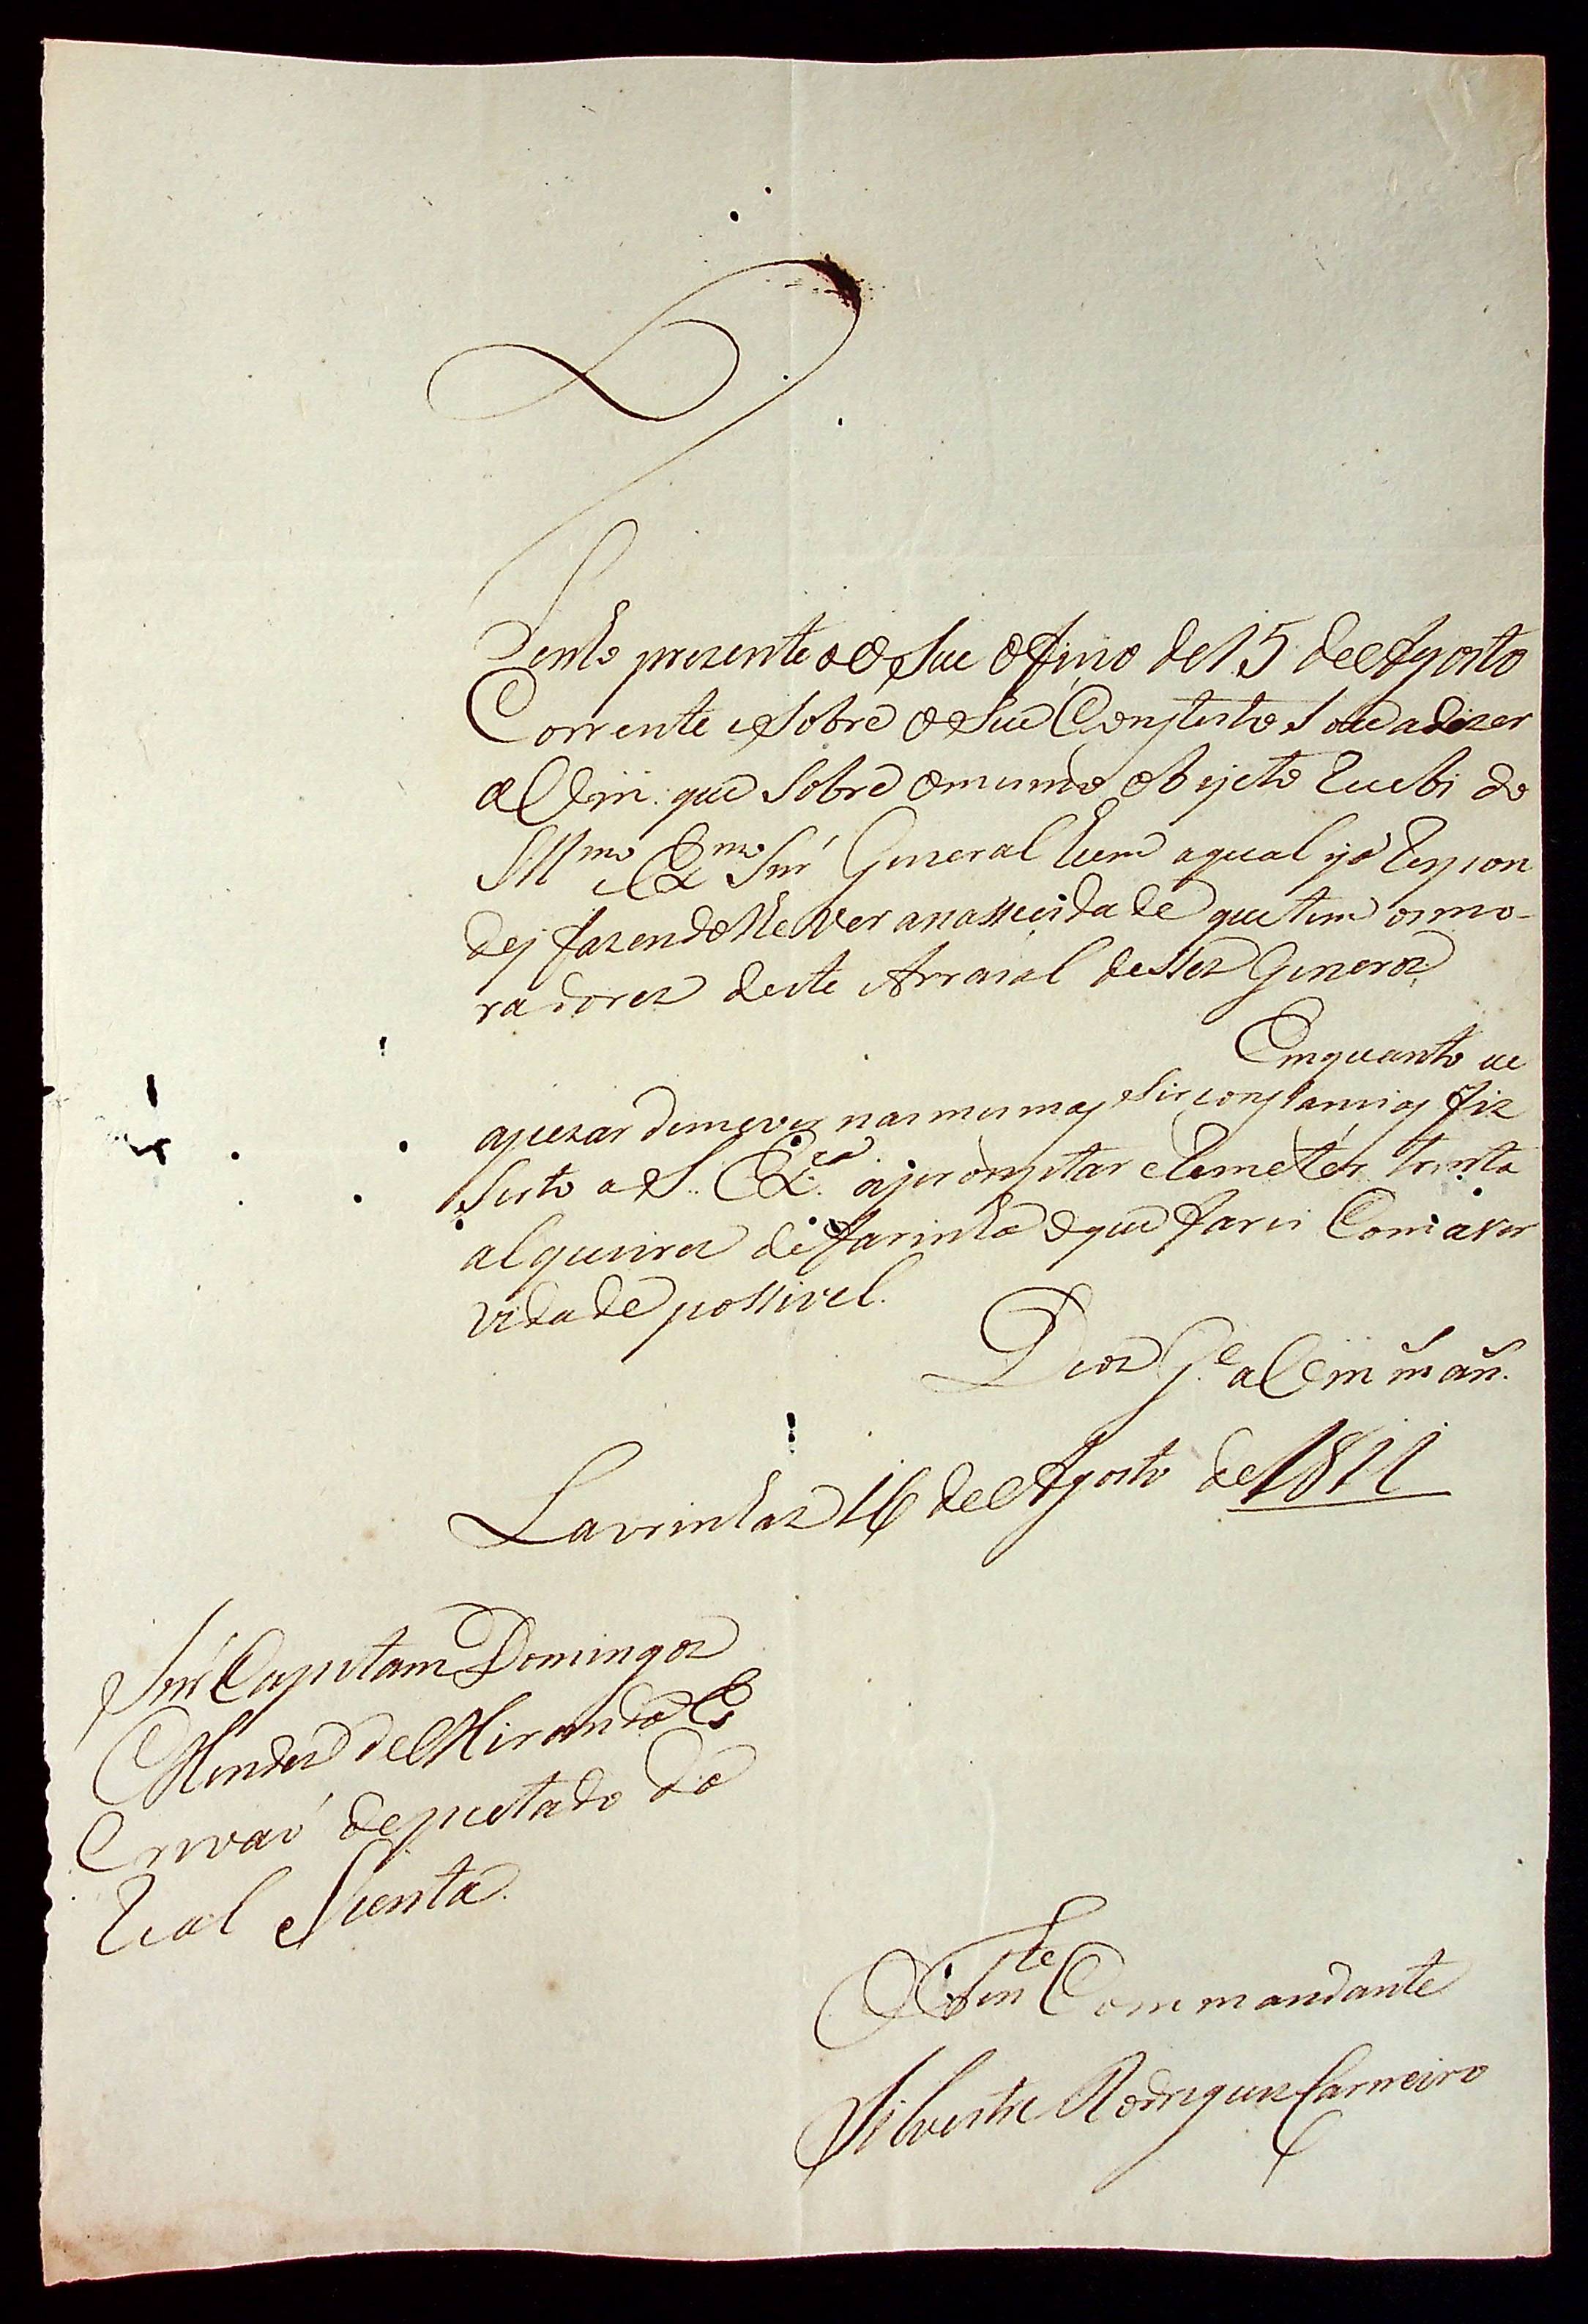 Tenho prezente o Seu Oficio de 15 de Agosto
Corrente e Sobre o Seu Constesto Sou a dizer
a Vm. que Sobre o mesmo objeto Recebi do
Illmo e Exmo Snr General hum a qual já Respon
dej fazendolhe ver a nassecidade que tem os mo-
radores deste Arraial desses Generos.
Emquanto eu
apezar de me ver nas mesmas Sirconstancias fiz
Serto a S. Exca aprontar e Remeter trinta
alqueires de farinha o que farei Com a ver
vidade possivel.
Deos Ge a Vm ms ans.
Lavrinhas 16 de Agosto de 1811
Snr Capitam Domingos
Mendes de Miranda
Escrivaó deputado da
Real Junta
O Tente Commandante
Silvestre Rodrigues Carneiro